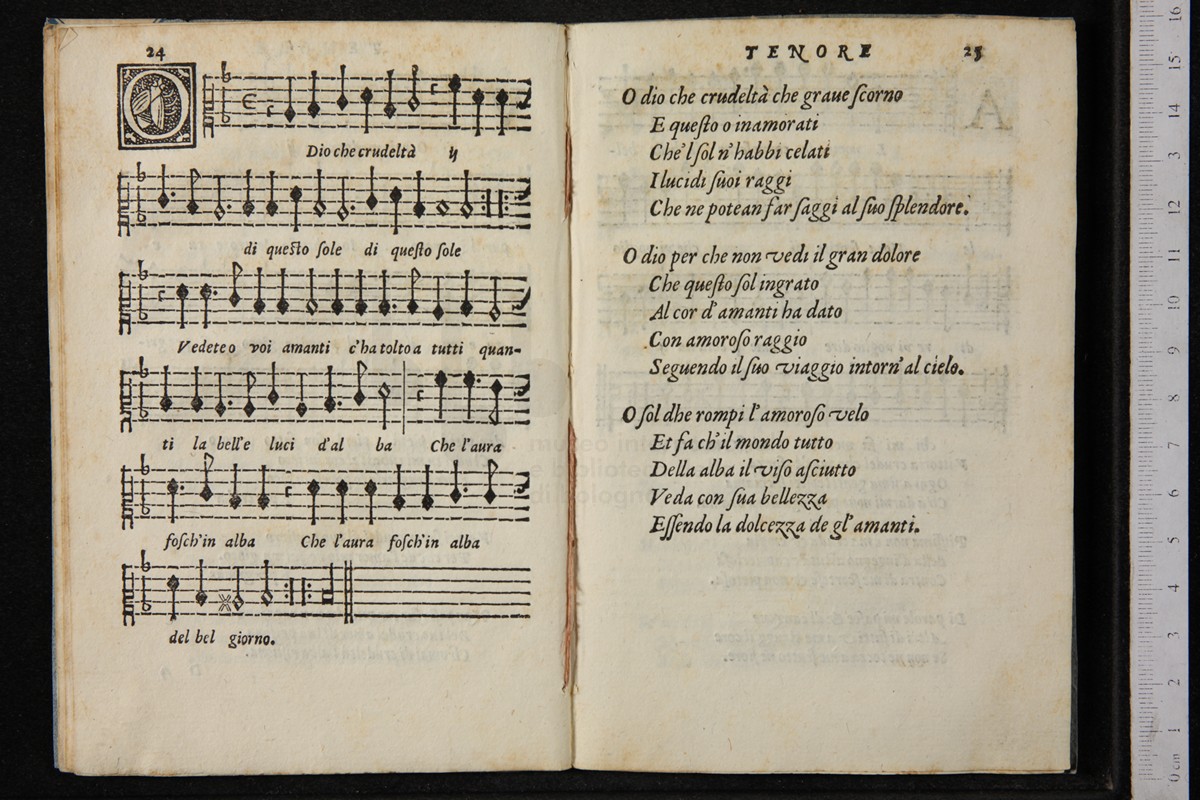 24
O
Dio che crudeltà ij
di questo sole di questo sole
Vedete o voi amanti c'ha tolto a tutti quan-
ti la bell'e luci d'al ba Che l'aura
fosch'in alba Che l'aura fosch'in alba
del bel giorno.
TENORE 25
O dio che crudeltà che graue scorno
E questo o inamorati
Che'l sol n'habbi celati
I lucidi suoi raggi
Che ne potean far saggi al suo splendore.
O dio per che non vedi il gran dolore
Che questo sol ingrato
Al cor d'amanti ha dato
Con amoroso raggio
Seguendo il suo viaggio intorn'al cielo.
O sol dhe rompi l'amoroso velo
Et fa ch'il mondo tutto
Della alba il viso asciutto
Veda con sua bellezza
Essendo la dolcezza de gl'amanti.
0 cm 1 2 3 4 5 6 7 8 9 10 11 12 13 14 15 16